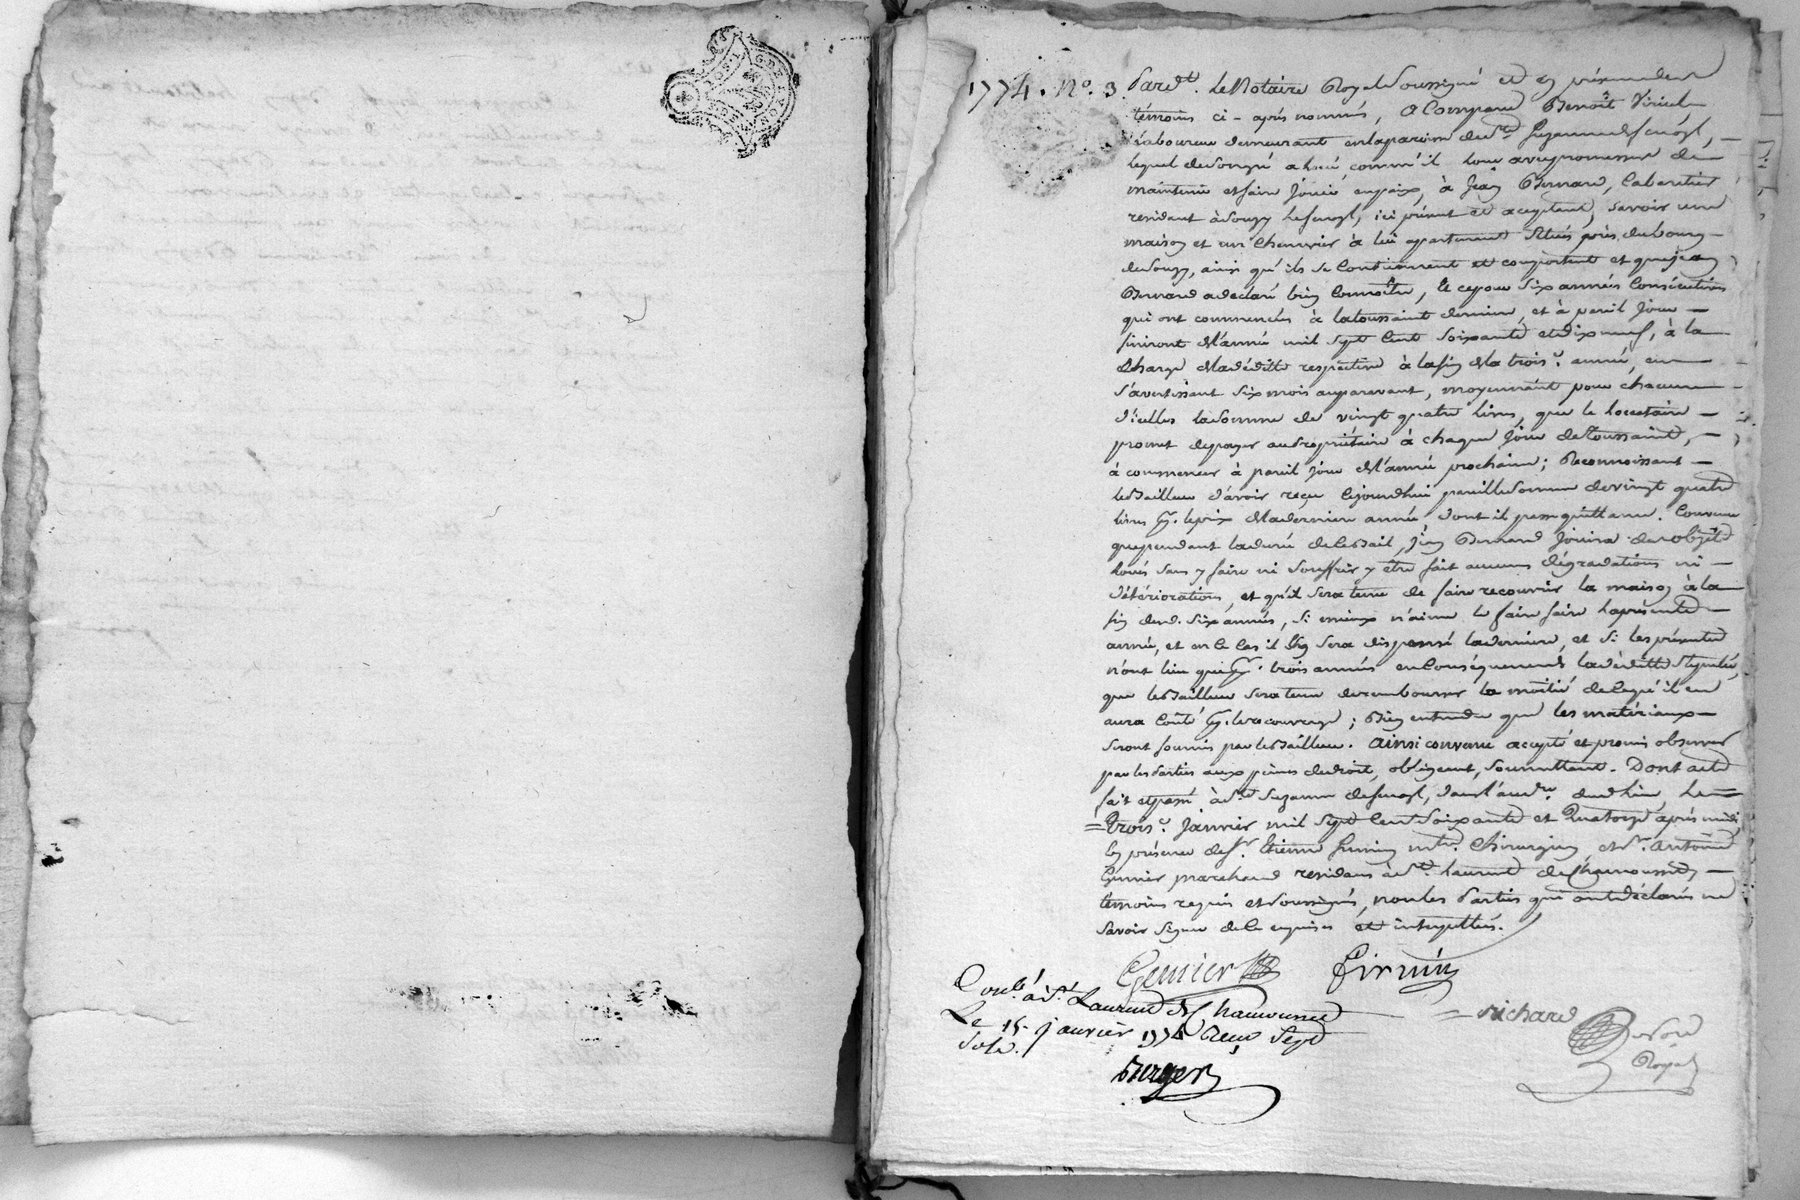 1774. N°. 3. Pardt. Le Notaire Royal soussigné et en présence des
témoins ci-après nommés, a Comparu Benoit Viricel
Laboureur demeurant en la paroisse de Ste
lequel de son gré a loué, comm'il loue avec promesse de
maintenir et faire Jouir en paix, à Jean Bernard, Cabaretier
residant à Souzy, ici présent et aceptant, savoir une
maison et un chenevier à lui apartenant situés près du bourg
de Souzy, ainsi qu'ils se Contiennent et comportent et que Jean
Bernard a declaré bien Connoître, Et ce pour six années Consécutives
qui ont commencées à la toussaint derniere, et à pareil Jour
finiront de l'année mil sept Cent soixante et dix neuf, à la
charge de la dédite respective à la fin de la trois.e année, en
s'avertissant six mois auparavant, moyennant pour chacune
d'icelles la somme de vingt quatre livres, que le Locataire
promet de payer au Propriétaire à chaque Jour de Toussaint,
à commencer à pareil Jour de l'année prochaine; Reconnoissant
le Bailleur d'avoir reçu cejourdhui pareille somme de vingt quatre
livres pr. le prix de la derniere année, dont il passe quittance. Convenu
que pendant la durée de ce Bail, Jean Bernard Jouira des objets
loués sans y faire ni souffrir y être fait aucunes dégradations ni
détériorations, et qu'il sera tenu de faire recouvrir la maison à la
fin desd. six années, si mieux n'aime le faire faire la présente
année, et en ce Cas il en sera dispensé la derniere, et si les présentes
n'ont lieu que pr. trois années en Conséquence de la dédite stipulée,
que le Bailleur sera tenu de rembourser la moitié de ce qu'il en
aura Coûté pr. le recouvrage; Bien entendu que les matériaux
seront fournis par le Bailleur. Ainsi convenu accepté et promis observer
par les Parties aux peines de droit, obligeant, soumettant. Dont acte
fait et passé à Ste Suzanne, dans l'aud.re dud. lieu le
trois.e Janvier mil sept Cent soixante et Quatorze après midi,
En présence de Sr. Etienne Firmin mtre. Chirurgien et Sr. Antoine
Grenier marchand residans à St. Laurent de Chamousset,
témoins requis et soussignés, non les Parties qui ont déclarés ne
savoir signer de ce enquises et interpellées.
Grenier Firmin
Richard
Not.re Royal
Conlé à St. Laurent de Chamousset
Le 15 janvier 1774 Reçu Sept
sols.
Burger